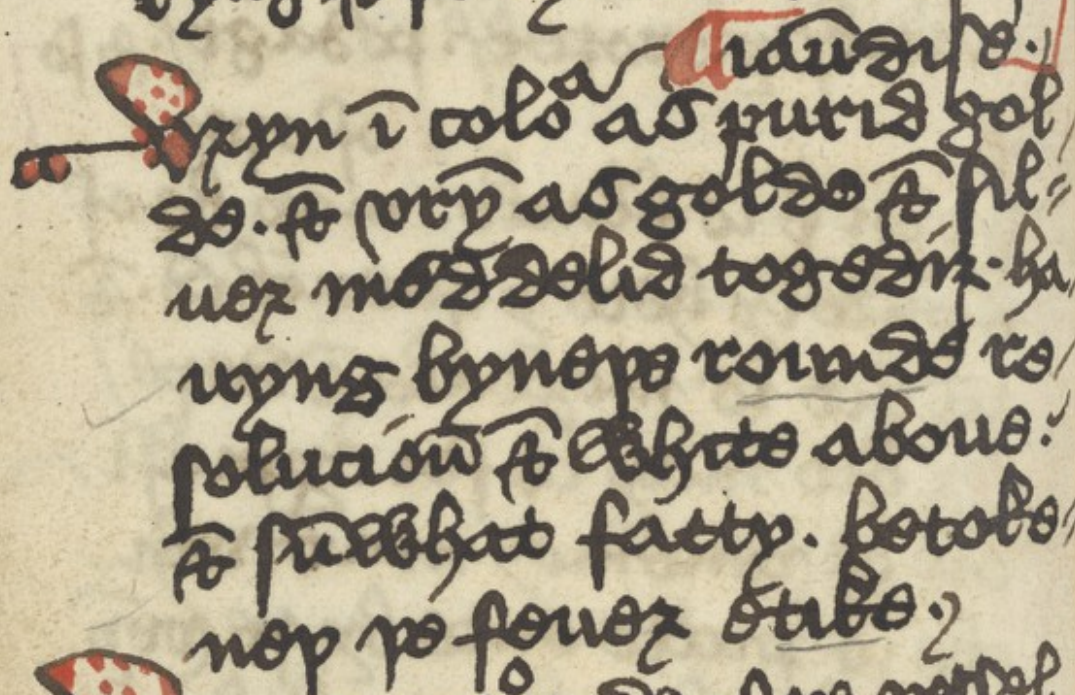 iaūdise.
Vryn ī coloᵃ as purid gol
de. & vryn̄ as golde & sil⸗
uer meddelid togedir. ha
uyng byneþe rounde re
solucioū & white aboue.
& sūwhat fatty. betoke
neþ þe feuer etike.